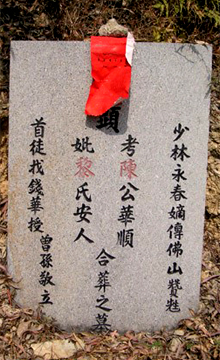 少林永春嫡傳佛山贊甡
考陳公華順
妣黎氏安人
合葬之墓
首徒找錢華授
曾孫敬立